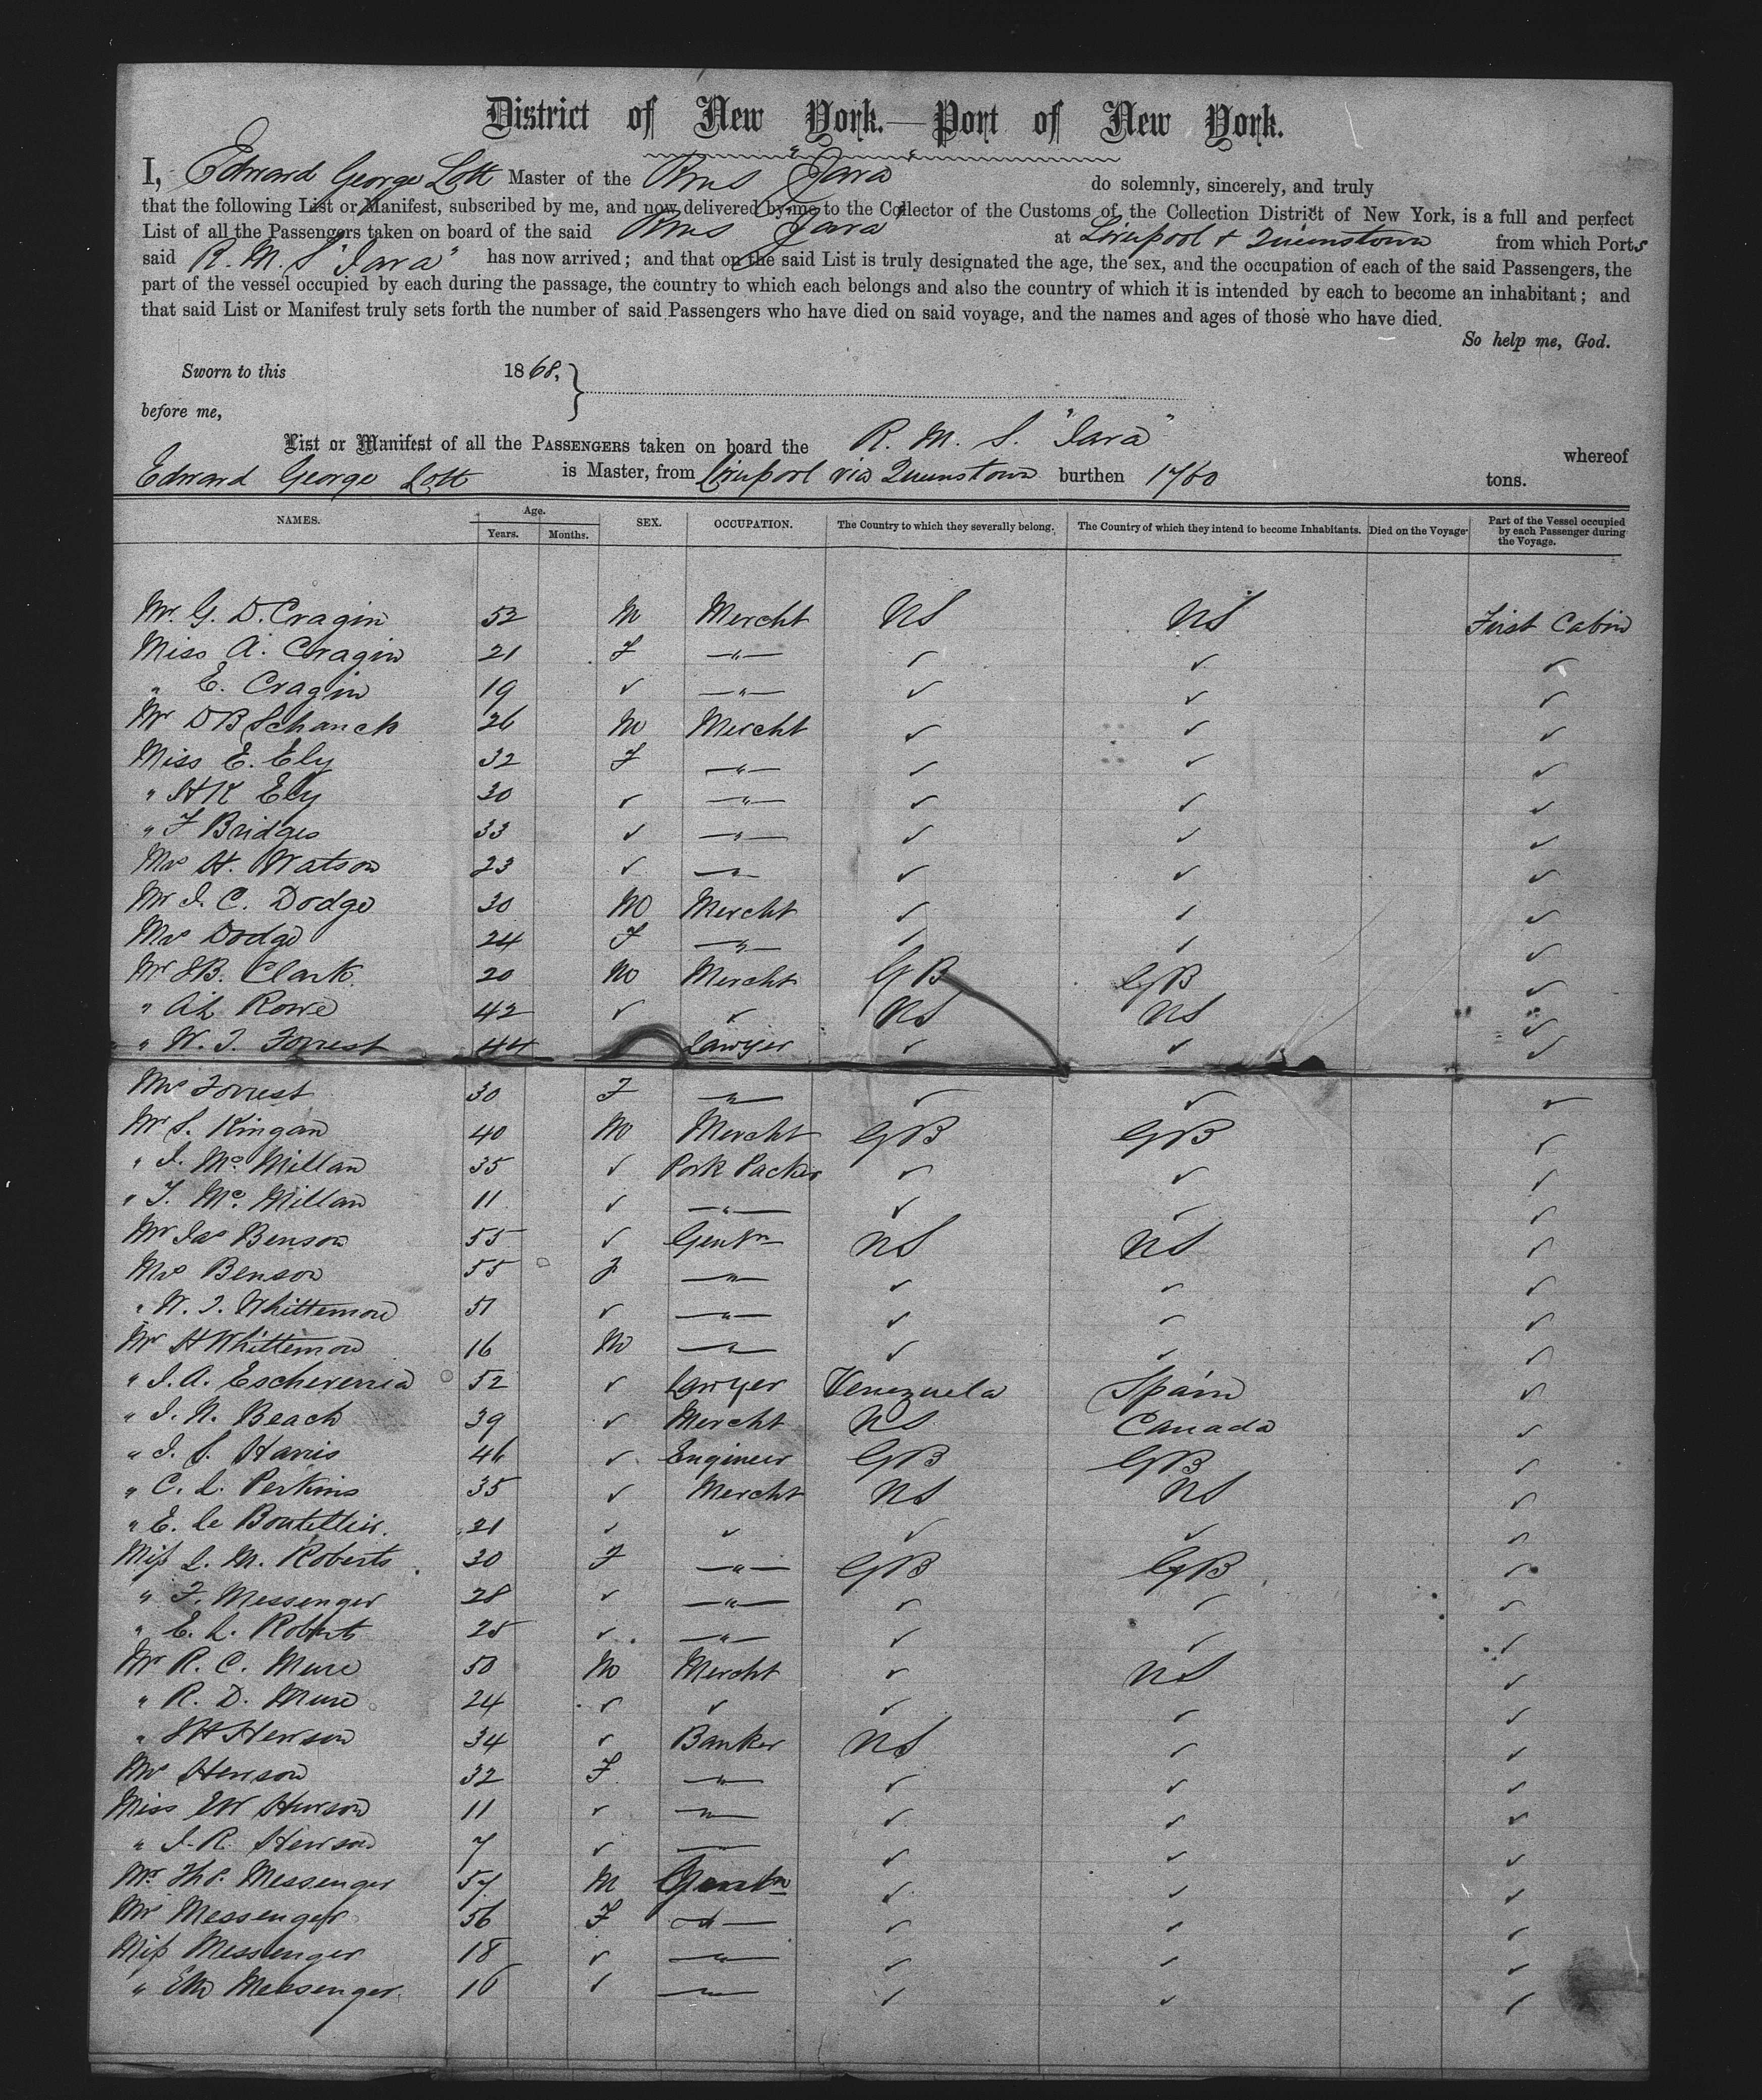 District of New York.—Port of New York.
I, Edward George Lott Master of the Rms "Java" do solemnly, sincerely, and truly
that the following List or Manifest, subscribed by me, and now delivered by me to the Collector of the Customs of the Collection District of New York, is a full and perfect
List of all the Passengers taken on board of the said Rms Java at Liverpool & Queenstown from which Ports
said R. M. S "Java" has now arrived; and that on the said List is truly designated the age, the sex, and the occupation of each of the said Passengers, the
part of the vessel occupied by each during the passage, the country to which each belongs and also the country of which it is intended by each to become an inhabitant; and
that said List or Manifest truly sets forth the number of said Passengers who have died on said voyage, and the names and ages of those who have died.
So help me, God.
Sworn to this 1868,
before me,
List or Manifest of all the PASSENGERS taken on board the R. M. S. "Java" whereof
Edward George Lott is Master, from Liverpool via Queenstown burthen 1760 tons.
NAMES. Age. Years. Months. SEX. OCCUPATION. The Country to which they severally belong. The Country of which they intend to become Inhabitants. Died on the Voyage. Part of the Vessel occupied by each Passenger during the Voyage.
Mr. G. D. Cragin 52 M Mercht US US First Cabin
Miss A. Cragin 21 F —"— ✓ ✓ ✓
" E. Cragin 19 ✓ —"— ✓ ✓ ✓
Mr D B Schanck 26 M Mercht ✓ ✓ ✓
Miss E. Ely 32 F —"— ✓ ✓ ✓
" H K Ely 30 ✓ —"— ✓ ✓ ✓
" F Bridges 33 ✓ —"— ✓ ✓ ✓
Mrs H. Watson 23 ✓ —"— ✓ ✓ ✓
Mr J. C. Dodge 30 M Mercht ✓ ✓ ✓
Mrs Dodge 24 F —"— ✓ ✓ ✓
Mr S B. Clark 20 M Mercht GB GB ✓
" A L Rowe 42 ✓ ✓ US US ✓
" W. J. Forrest 44 Lawyer ✓ ✓ ✓
Mrs Forrest 30 F —"— ✓ ✓ ✓
Mr S. Kingan 40 M Mercht GB GB ✓
" J. Mc Millan 35 ✓ Pork Packer ✓ ✓ ✓
" T. Mc Millan 11 ✓ —"— ✓ ✓ ✓
Mr Jas Benson 55 ✓ Gentn US US ✓
Mrs Benson 55 F —"— ✓ ✓ ✓
" W. J. Whittemore 51 ✓ —"— ✓ ✓ ✓
Mr H Whittemore 16 M —"— ✓ ✓ ✓
" J. A. Escheverria 52 ✓ Lawyer Venezuela Spain ✓
" J. N. Beach 39 ✓ Mercht US Canada ✓
" J. S. Harris 46 ✓ Engineer GB GB ✓
" C. L. Perkins 35 ✓ Mercht US US ✓
" E. le Boutillier. 21 ✓ ✓ ✓ ✓ ✓
Miss L. M. Roberts 30 F —"— GB GB ✓
" F. Messenger 28 ✓ —"— ✓ ✓ ✓
" E. L. Roberts 25 ✓ —"— ✓ ✓ ✓
Mr R. C. Mure 50 M Mercht ✓ US ✓
" R. D. Mure 24 ✓ ✓ ✓ ✓ ✓
" S H Hewson 34 ✓ Banker US ✓ ✓
Mrs Hewson 32 F —"— ✓ ✓ ✓
Miss E W Hewson 11 ✓ —"— ✓ ✓ ✓
" J. R. Hewson 7 ✓ —"— ✓ ✓ ✓
Mr. Thos. Messenger 57 M Gentn ✓ ✓ ✓
Mrs Messenger 56 F —"— ✓ ✓ ✓
Miss Messenger 18 ✓ —"— ✓ ✓ ✓
" Messenger. 16 ✓ —"— ✓ ✓ ✓